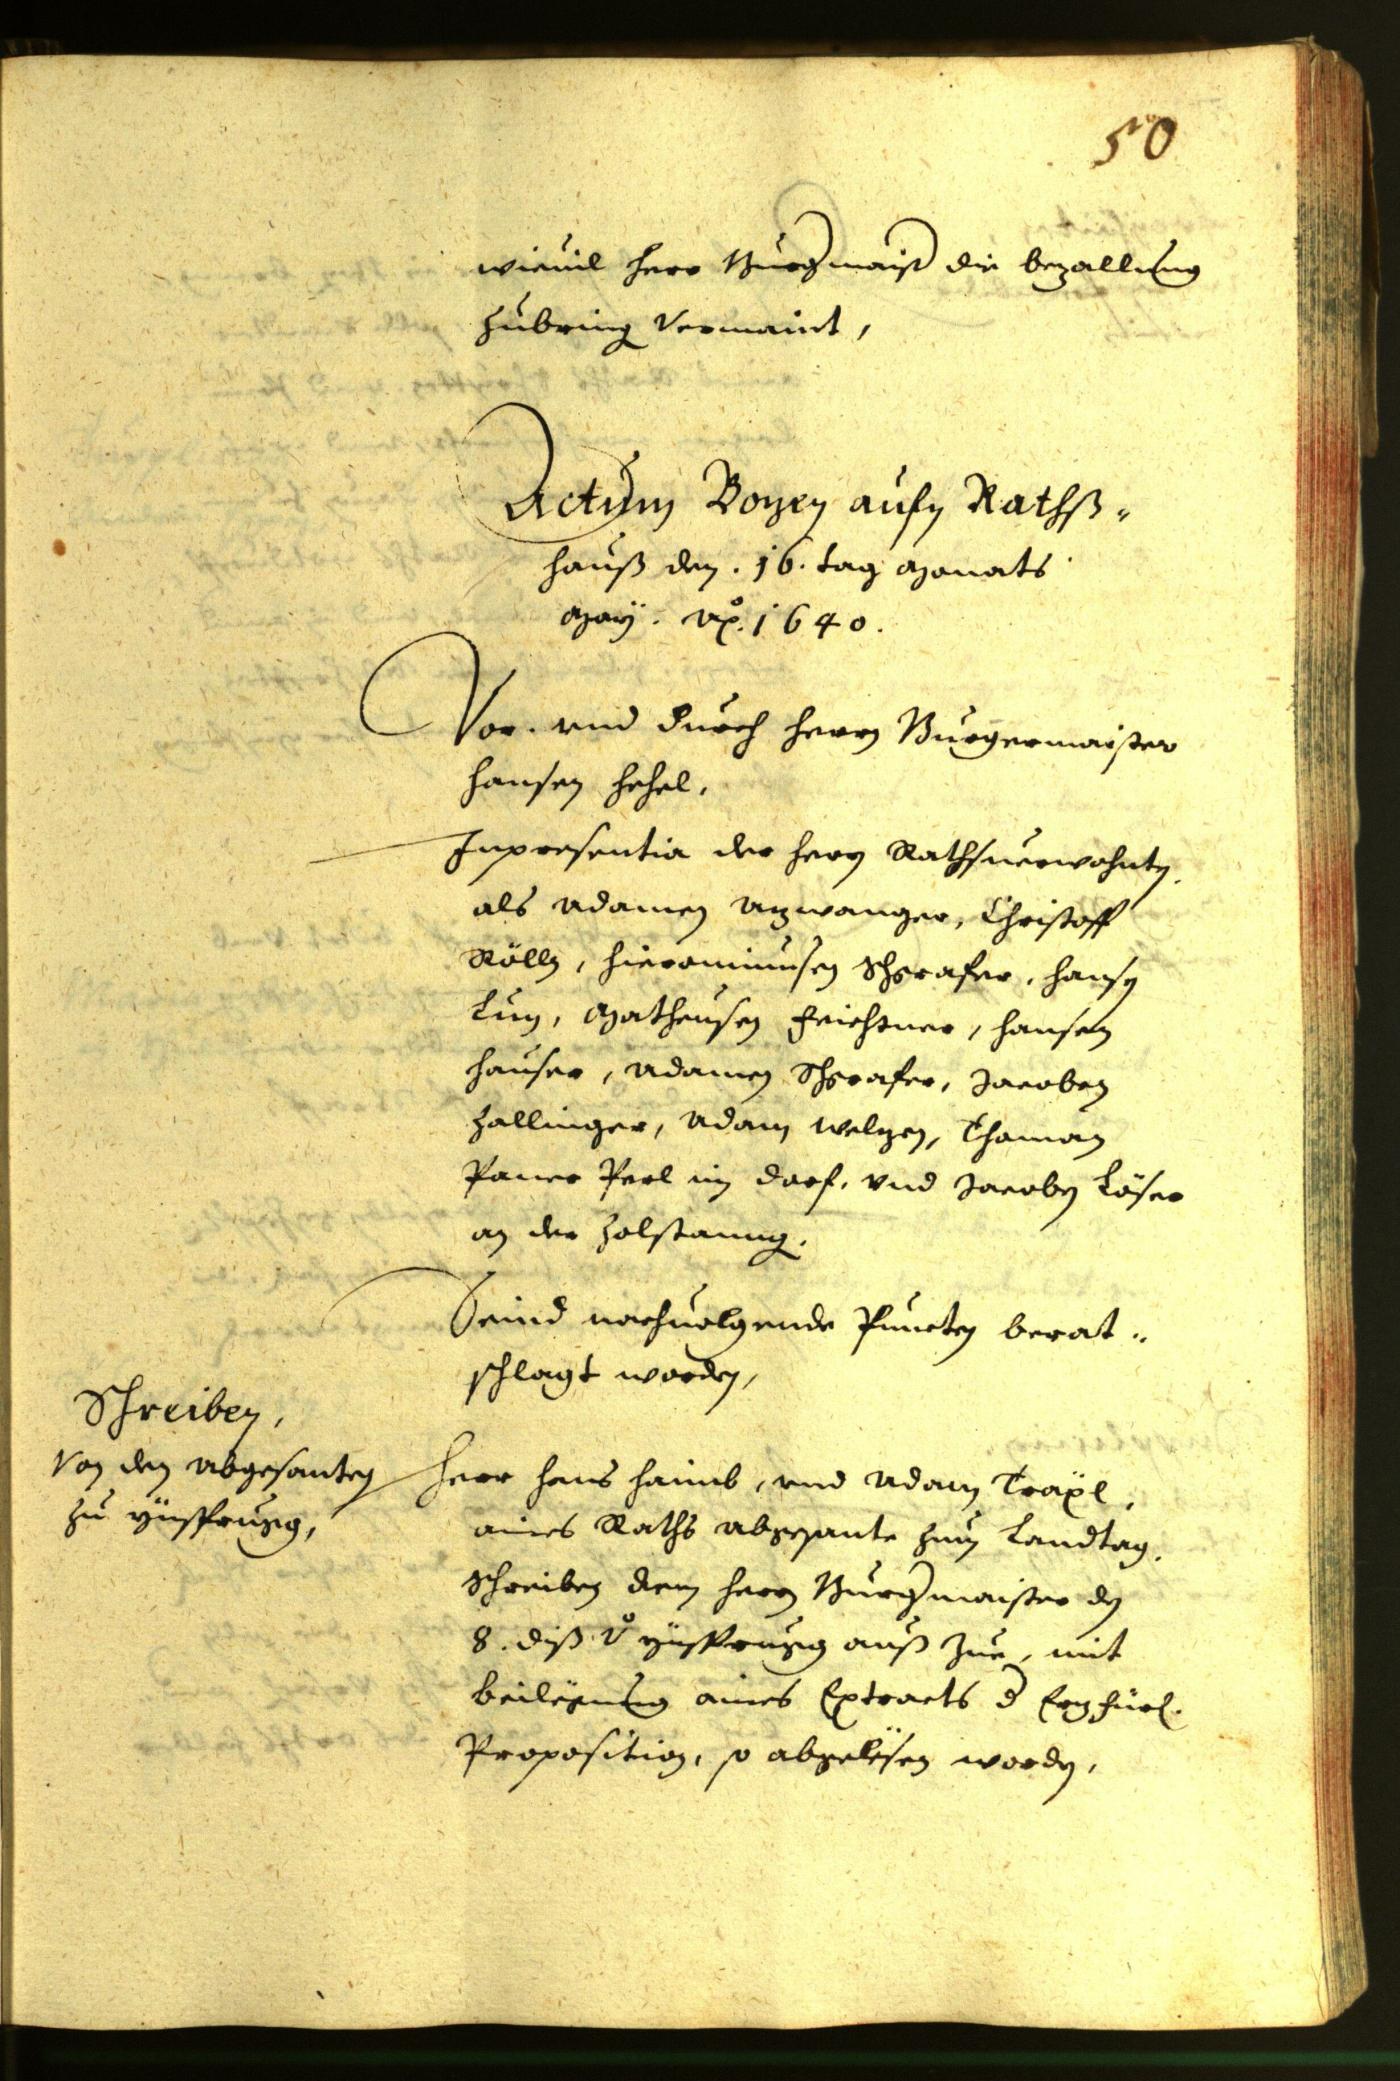 50
wieuil herr Burgmaist die bezallung
zubring Vermaint,
Actum Bozen aufn Rathß„
hauß den . 16. tag Monats
Maÿ . Ao. 1640.
Vor. vnd durch herrn Burgermaister
hansen hehel,
Inpresentia der herrn Rathsuerwohntn,
als Adamen Azwanger, Christoff
Rölln, hieronimusen Schgrafer, hansn
Lun, Matheusen Feichtner, hansen
hauser, Adamen Schgrafer, Jacoben
Zallinger, Adam Welzen, Thaman
Paner Perl im dorf, vnd Jacobn Löser
an der Zolstanng.
Seind nachuolgende Puncten berat„
schlagt worden,
Schreiben,
Von den abgesanten
zu ÿnsprugg,
Herr hans haimb, vnd Adam Träxl,
aines Raths abgesante zum Landtag,
Schreiben dem herrn Burgmaister dn
8. diß Vo ÿnsprugg auß zue, mit
beilegung aines Extracts d Erzfürl.
Proposition, so abgelesen wordn,